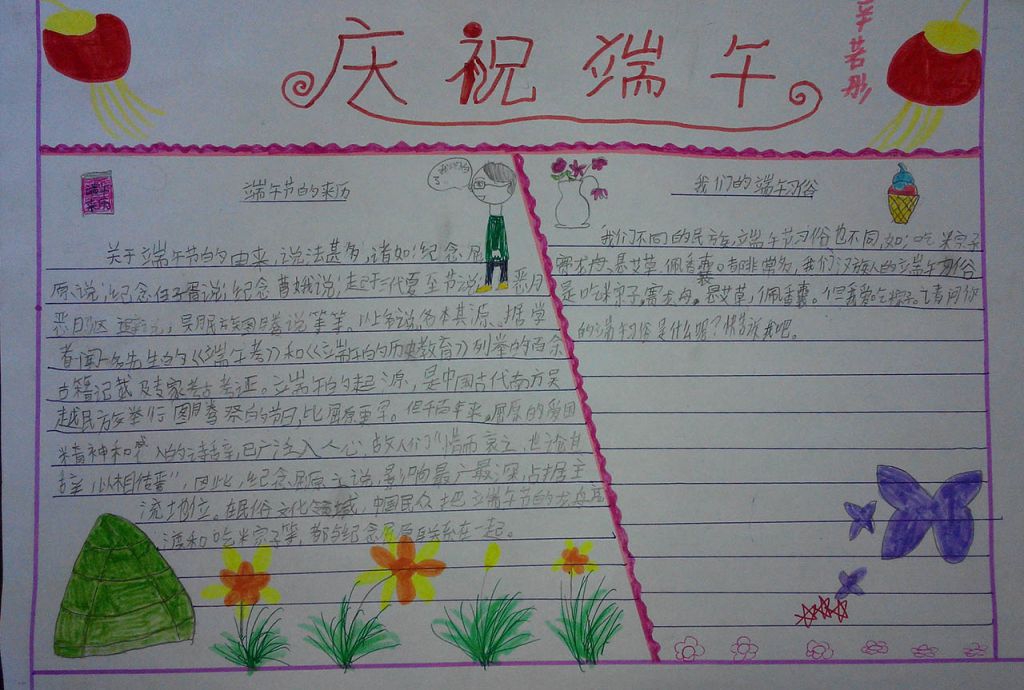 庆祝端午
辛若彤
端午节的来历
关于端午节的由来,说法甚多,诸如:纪念屈
原说;纪念伍子胥说;纪念曹娥说;起于三代夏至节说;恶月
恶日驱 说,吴月民族图腾说等等。以上各说,各本其源。据学
者闻一多先生的《端午考》和《端午的历史教育》列举的百余
古籍记载及专家考古考证。端午的起源,是中国古代南方吴
越民族举行图腾祭的节日,比屈原更早。但千百年来,屈原的爱国
精神和感人的诗辞,已广泛入人心,故人们“惜而哀之,世论其
辞,以相传焉”,因此,纪念屈原之说,影响最广最深,占据主
流地位。在民俗文化领域,中国民众把端午节的龙舟竞
渡和吃米宗子等,都与纪念屈原联系在一起。
我们的端午习俗
我们不同的民族,端午节习俗也不同,如:吃米宗子
赛龙舟、悬艾草,佩香囊。都非常多,我们汉族人的端午习俗
是吃米宗子,赛龙舟。悬艾草,佩香囊。但我爱吃粽子。请问你
的端午习俗是什么呢?快告诉我吧。